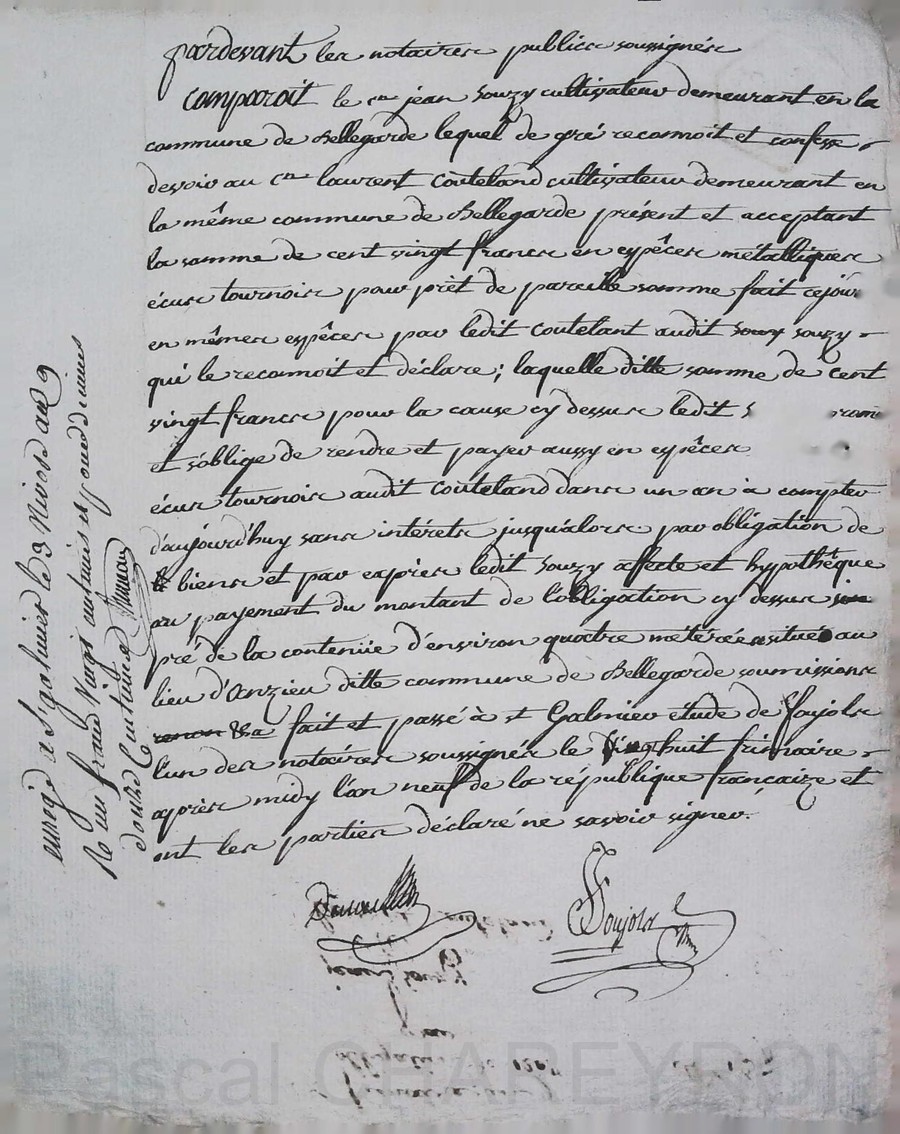 pardevant les notaires publics soussignés
comparoit le cen jean Souzy cultivateur demeurant en la
commune de Bellegarde lequel de gré reconnoit et confesse
devoir au cen laurent Couteland cultivateur demeurant en
la même commune de Bellegarde présent et acceptant
la somme de cent vingt francs en espêces métalliques
écus tournois pour prèt de pareille somme fait cejour
en mêmes espêces par ledit Coutelant audit souzy souzy
qui le reconnoit et déclare; laquelle ditte somme de cent
vingt francs pour la cause cy dessus ledit
et s'oblige de rendre et payer aussy en espêces
écus tournois audit Couteland dans un an à compter
d'aujourd'huy sans intérets jusqu'alors par obligation de
biens et par exprès ledit Souzy affecte et hypothêque
au payement du montant de l'obligation cy dessus
pré de la contenüe d'environ quatre métérées située au
lieu d'Anzieu ditte commune de Bellegarde soumissions
renon &a fait et passé à st Galmier étude de Soujols
l'un des notaires soussignés le vingt huit frimaire
après midy l'an neuf de la république française et
ont les parties déclaré ne savoir signer.
Soujols
enregé a St galmier le 3 Nivose an 9
R un franc vingt centimes et pour dixième
douze centimes
Pascal CHAREYRON